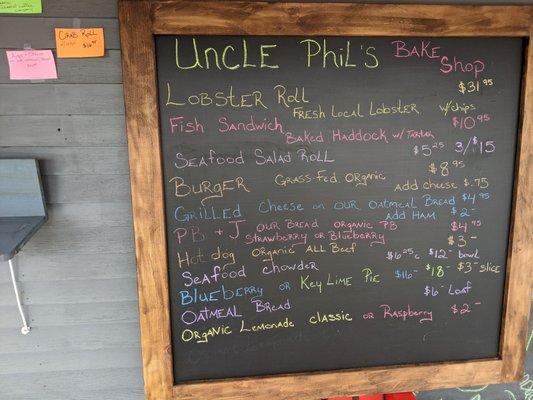 CRAB ROLL
UNCLE PHIL'S BAKE SHOP
LOBSTER ROLL FRESH LOCAL LOBSTER w/CHIPS $31.95
FISH SANDWICH BAKED HADDOCK w/ TARTAR $10.95
SEAFOOD SALAD ROLL $5.25 3/$15
BURGER GRASS-FED ORGANIC $8.95
ADD CHEESE $.75
GRILLED CHEESE ON OUR OATMEAL BREAD $4.95
ADD HAM $2-
PB + J OUR BREAD ORGANIC PB $4.95
STRAWBERRY OR BLUEBERRY
HOT DOG ORGANIC ALL BEEF $3-
SEAFOOD CHOWDER $6.25 c $12- BOWL
BLUEBERRY OR KEY LIME PIE $16- $18- $3- SLICE
OATMEAL BREAD $6- LOAF
ORGANIC LEMONADE CLASSIC OR RASPBERRY $2-